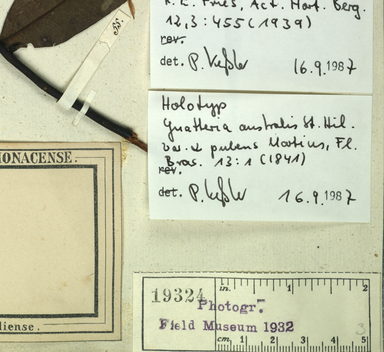 R. E. Fries, Act. Hort. Berg.
12,3: 455 (1939)
rev.
det. P. Keßler 16.9.1987
Holotyp
Guatteria australis St. Hil.
var. α pubens Martius, Fl.
Bras. 13:1 (1841)
rev.
det. P. Keßler 16.9.1987
MONACENSE.
liense.
19324
Photogr.
Field Museum 1932
in. 1 2
cm 1 2 3 4 5
3